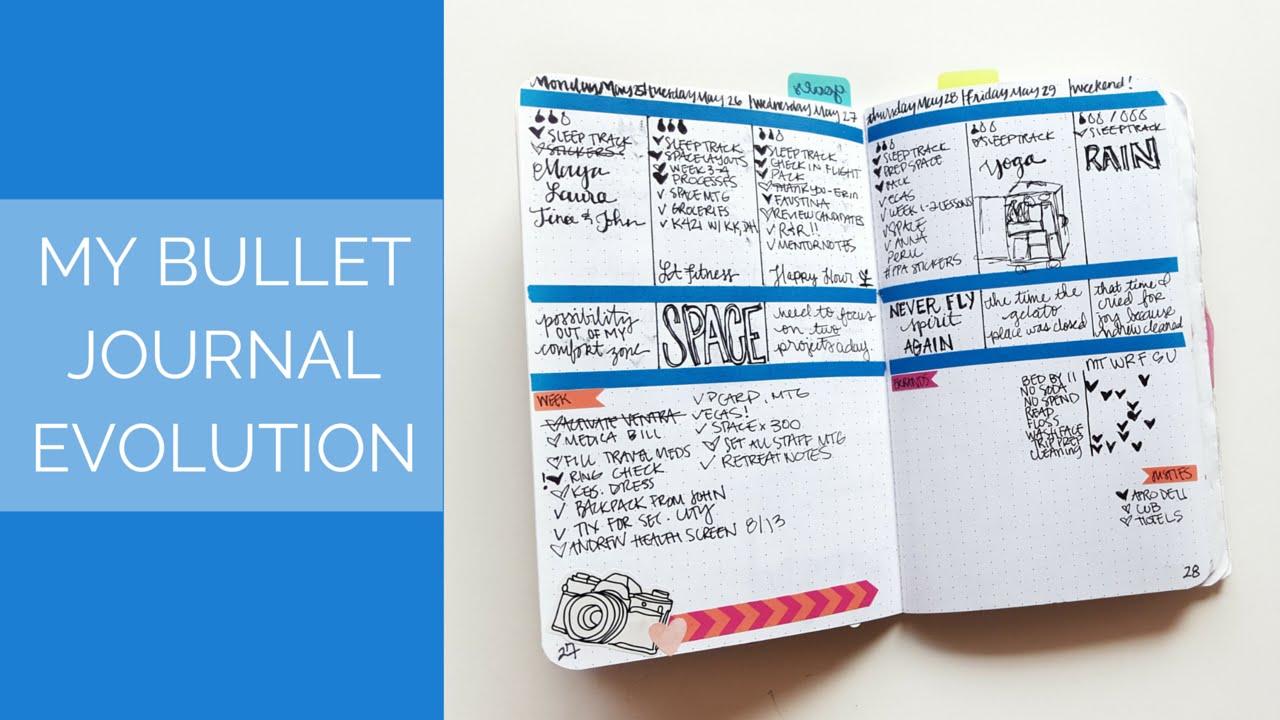 MY BULLET
JOURNAL
EVOLUTION
goals
Monday May 25
Tuesday May 26
Wednesday May 27
Thursday May 28
Friday May 29
weekend!
SLEEP TRACK
STICKERS
Maya
Laura
Tina & John
SLEEP TRACK
SPACE LAYOUTS
WEEK 3-4
PROCESSES
SPACE MTG
GROCERIES
K421 W/ KK, DH
Lt Fitness
SLEEP TRACK
CHECK IN FLIGHT
PACK
THANK YOU - ERIN
FAUSTINA
REVIEW CANDIDATES
R&R!!
MENTOR NOTES
Happy Hour
SLEEP TRACK
PREP SPACE
PACK
ECAS
WEEK 1-2 LESSONS
SPACE
ANNA
PERU
#TPA STICKERS
SLEEP TRACK
Yoga
SLEEP TRACK
RAIN
possibility
OUT OF MY
comfort zone
SPACE
need to focus
on two
projects a day.
NEVER FLY
spirit
AGAIN
the time the
gelato
place was closed
that time I
cried for
joy because
Andrew cleaned
WEEK
ACTIVATE VENTRA
MEDICA BILL
FILL TRAVEL MEDS
! RING CHECK
KEB. DRESS
BACKPACK FROM JOHN
TIX FOR SEC. CITY
ANDREW HEALTH SCREEN 8/13
PCARD, MTG
ECAS!
SPACE x 300
SET ALL STAFF MTG
RETREAT NOTES
27
M T W R F S U
BED BY 11
NO SODA
NO SPEND
READ
FLOSS
WASH FACE
TRIP PREP
CLEANING
AFRO DELI
CUB
HOTELS
28